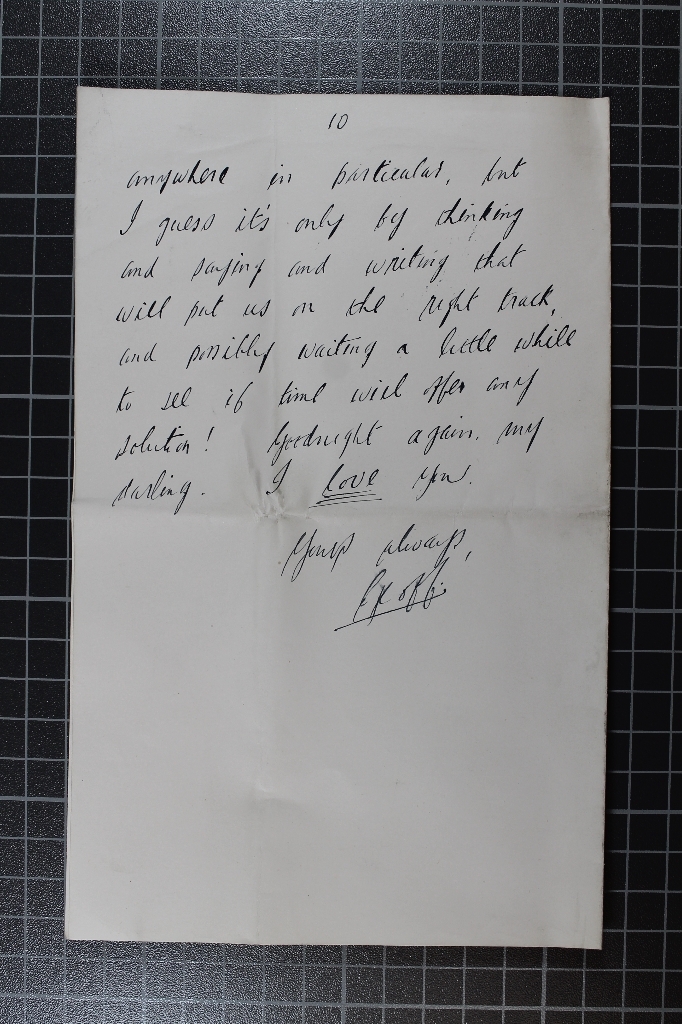 10
anywhere in particular, but
I guess it's only by thinking
and saying and writing that
will put us on the right track,
and possibly waiting a little while
to see if time will offer any
solution! Goodnight again, my
darling. I love you.
Yours always,
Geoff.